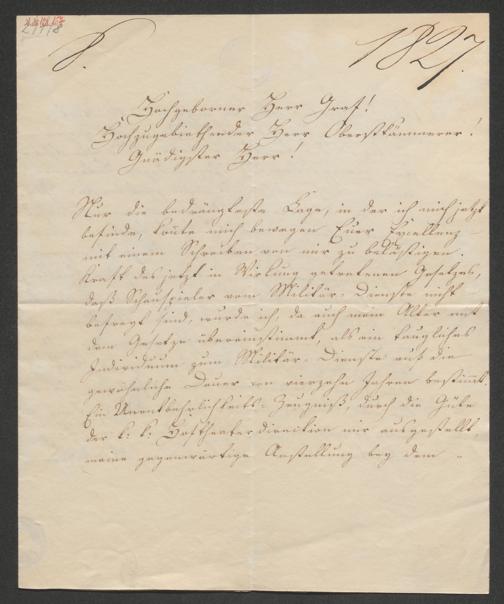 8.
1827.
Hochgeborner Herr Graf!
Hochzugebiethender Herr Oberstkämmerer!
Gnädigster Herr!
Nur die bedrängteste Lage, in der ich mich jetzt
befinde, konnte mich bewegen Euer Excellenz
mit einem Schreiben von mir zu belästigen.
Kraft des jetzt in Wirkung getretenen Gesetzes,
daß Schauspieler vom Militär-Dienste nicht
befreyt sind, wurde ich, da auch mein Alter mit
dem Gesetze übereinstimmt, als ein taugliches
Individuum zum Militär-Dienste auf die
gewöhnliche Dauer von vierzehn Jahren bestimmt.
Ein Unentbehrlichkeits-Zeugniß, durch die Güte
der k: k: Hoftheaterdirection mir ausgestellt
meine gegenwärtige Anstellung bey dem -